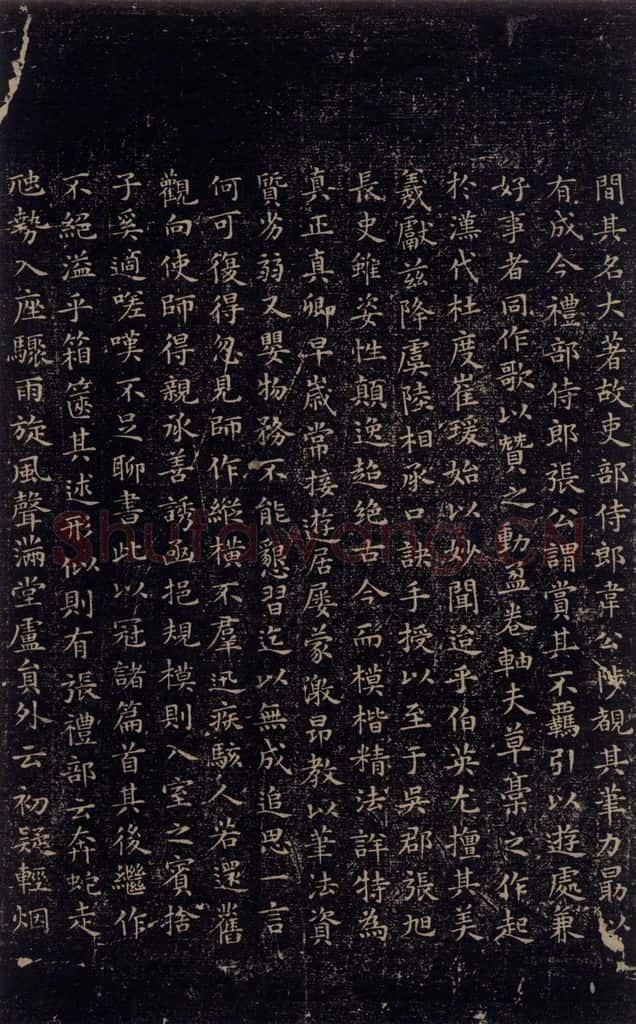 間其名大著故吏部侍郎韋公陟覩其筆力勗以
有成今禮部侍郎張公謂賞其不羈引以遊處兼
好事者同作歌以贊之動盈卷軸夫草藁之作起
於漢代杜度崔瑗始以妙聞迨乎伯英尤擅其美
羲獻茲降虞陸相承口訣手授以至于吳郡張旭
長史雖姿性顛逸超絕古今而模楷精法詳特為
真正真卿早歲常接遊居屢蒙激昂教以筆法資
質劣弱又嬰物務不能懇習迄以無成追思一言
何可復得忽見師作縱橫不羣迅疾駭人若還舊
觀向使師得親承善誘亟挹規模則入室之賓捨
子奚適嗟嘆不足聊書此以冠諸篇首其後繼作
不絕溢乎箱篋其述形似則有張禮部云奔蛇走
虺勢入座驟雨旋風聲滿堂盧員外云初疑輕烟
Shufawang.CN